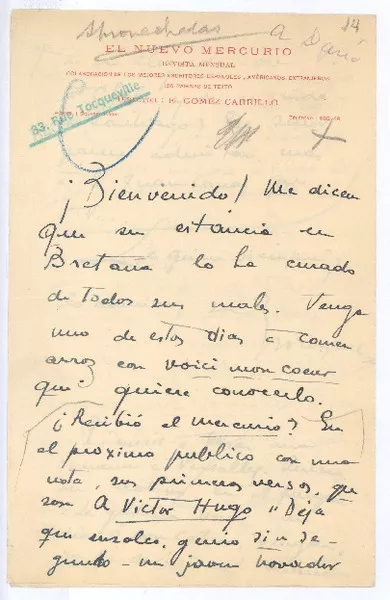 Aprovechadas
A Darío
14
EL NUEVO MERCURIO
REVISTA MENSUAL
COLABORACIÓN DE LOS MEJORES ESCRITORES ESPAÑOLES, AMERICANOS, EXTRANJEROS
PÁGINAS DE TEXTO
E. GÓMEZ CARRILLO
83, Rue Tocqueville
¡Bienvenido! Me dicen
que su estancia en
Bretaña lo ha curado
de todos sus males. Venga
uno de estos días a comer
arroz con voici mon coeur
que quiere conocerlo.
¿Recibió el mercurio? En
el próximo publico con una
nota, sus primeros versos, que
son A Victor Hugo "Deja
que ensalce, genio sin se-
gundo - un joven trovador